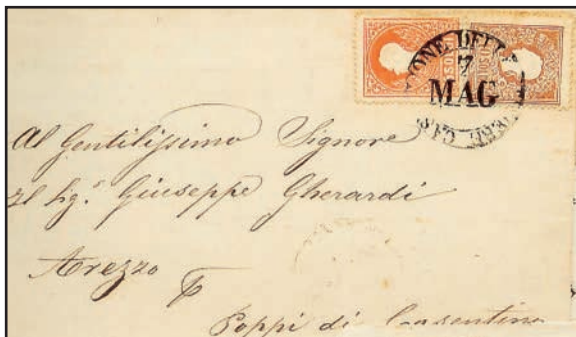 IONE DELL
7
MAG
Al Gentilissimo Signore
Il Sig.r Giuseppe Gherardi
Arezzo
Poppi di Casentino